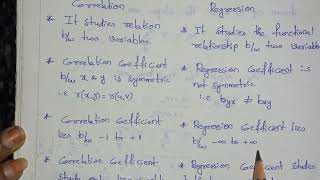 Correlation
Regression
* It studies relation
b/w two variables
* It studies the functional
relationship b/w two variables
* Correlation Coefficient
b/w x & y is symmetric
i.e r(x,y) = r(y,x)
* Regression Coefficient is
not symmetric
i.e byx ≠ bxy
* Correlation Coefficient
lies b/w -1 to +1
* Regression Coefficient lies
b/w -∞ to +∞
* Correlation Coefficient
* Regression Coefficient studies